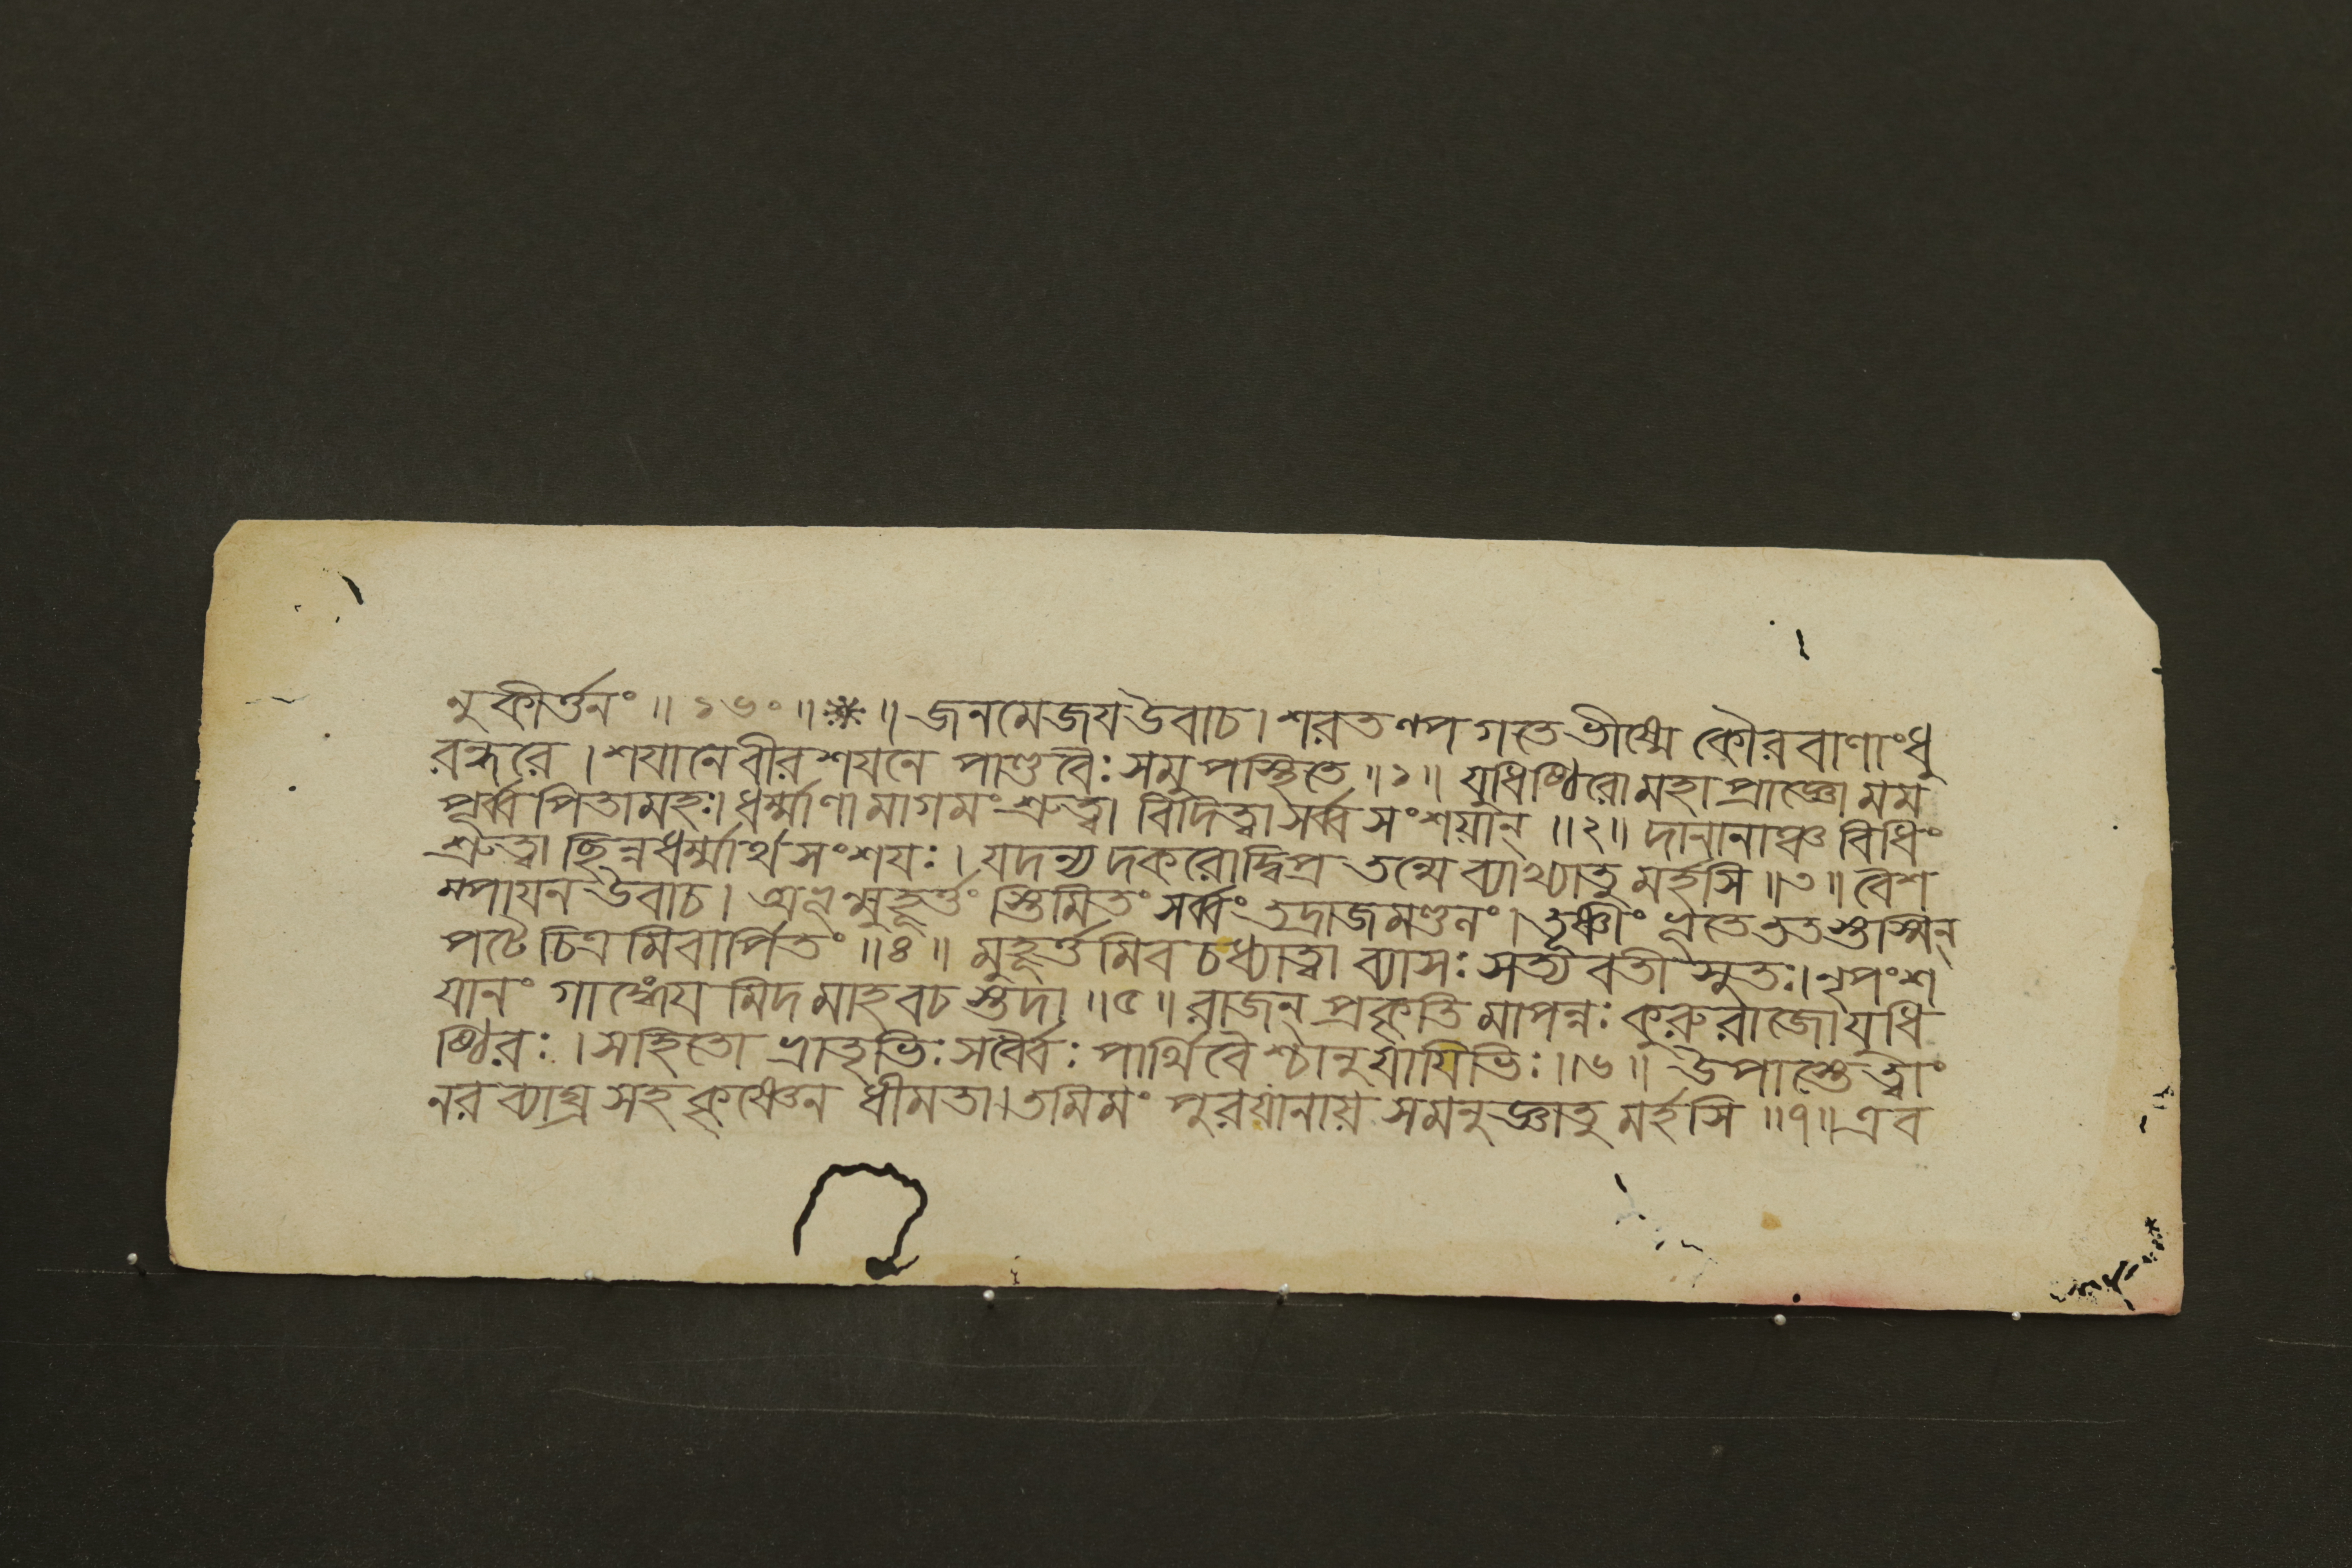 নুকীর্ত্তনং ॥ ১৬০ ॥ * ॥ জনমেজয উবাচ । শরতল্পগতে ভীষ্মে কৌরবাণাং ধু
রন্ধরে । শযানে বীরশযনে পাণ্ডবৈঃ সমুপস্থিতে ॥ ১ ॥ যুধিষ্ঠিরো মহাপ্রাজ্ঞো মম
পূর্ব্বপিতামহঃ । ধর্ম্মাণামাগমং শ্রুত্বা বিদিত্বা সর্ব্বসংশয়ান্ ॥ ২ ॥ দানানাঞ্চ বিধিং
শ্রুত্বা ছিন্নধর্ম্মার্থসংশযঃ । যদন্যদকরোদ্বিপ্র তন্মে ব্যাখ্যাতুমর্হসি ॥ ৩ ॥ বৈশ
ম্পাযন উবাচ । অভূন্মুহূর্ত্তং স্তিমিতং সর্ব্বং তদ্রাজমণ্ডনং । তূষ্ণীং ভূতে ততস্তস্মিন্
পটে চিত্রমিবার্পিতং ॥ ৪ ॥ মুহূর্ত্তমিব চ ধ্যাত্বা ব্যাসঃ সত্যবতীসুতঃ । নৃপং শ
যানং গাঙ্গেযমিদমাহ বচস্তদা ॥ ৫ ॥ রাজন্ প্রকৃতিমাপন্নঃ কুরুরাজো যুধি
ষ্ঠিরঃ । সহিতো ভ্রাতৃভিঃ সর্ব্বৈঃ পার্থিবৈশ্চানুযাযিভিঃ ॥ ৬ ॥ উপাস্তে ত্বাং
নরব্যাঘ্র সহ কৃষ্ণেন ধীমতা । তমিমং পুরযানায় সমনুজ্ঞাতুমর্হসি ॥ ৭ ॥ এব